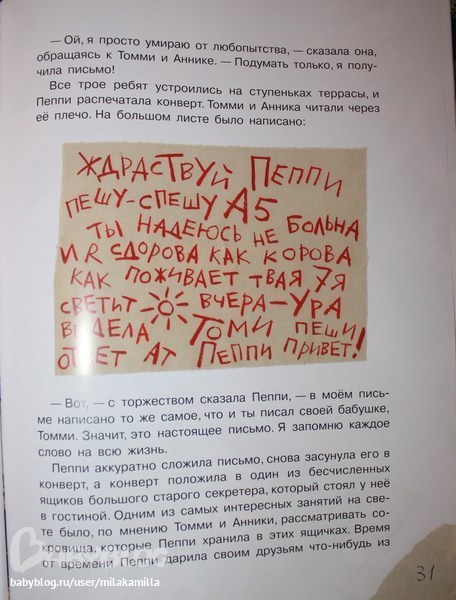 — Ой, я просто умираю от любопытства, — сказала она,
обращаясь к Томми и Аннике. — Подумать только, я полу-
чила письмо!
Все трое ребят устроились на ступеньках террасы, и
Пеппи распечатала конверт. Томми и Анника читали через
её плечо. На большом листе было написано:
ЖДРАСТВУЙ ПЕППИ
ПЕШУ-СПЕШУ А5
ТЫ НАДЕЮСЬ НЕ БОЛЬНА
И R СДОРОВА КАК КОРОВА
КАК ПОЖИВАЕТ ТВАЯ 7Я
СВЕТИТ ВЧЕРА—УРА
ВИДЕЛА ТОМИ ПЕШИ!
ОТВЕТ АТ ПЕППИ ПРИВЕТ!
— Вот, — с торжеством сказала Пеппи, — в моём пись-
ме написано то же самое, что и ты писал своей бабушке,
Томми. Значит, это настоящее письмо. Я запомню каждое
слово на всю жизнь.
Пеппи аккуратно сложила письмо, снова засунула его в
конверт, а конверт положила в один из бесчисленных
ящиков большого старого секретера, который стоял у неё
в гостиной. Одним из самых интересных занятий на све-
те было, по мнению Томми и Анники, рассматривать со-
кровища, которые Пеппи хранила в этих ящичках. Время
от времени Пеппи дарила своим друзьям что-нибудь из
31
babyblog.ru/user/milakamilla